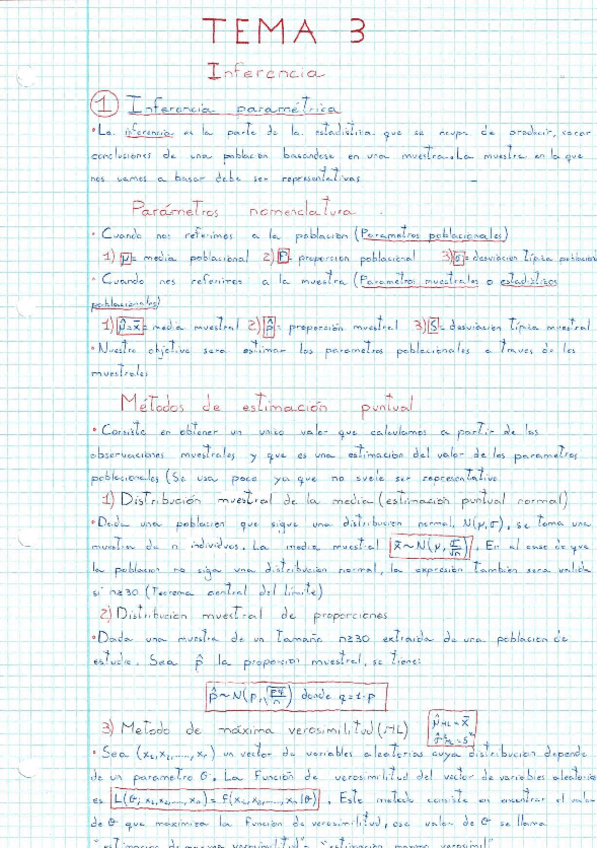 TEMA 3
Inferencia
1 Inferencia paramétrica
• La inferencia es la parte de la estadística que se ocupa de predecir, sacar
conclusiones de una poblacion basandose en una muestra. La muestra en la que
nos vamos a basar debe ser representativas
Parámetros nomenclatura
• Cuando nos referimos a la poblacion (Parametros poblacionales)
1) μ= media poblacional 2) P= proporcion poblacional 3) σ= desviacion típica poblacional
• Cuando nos referimos a la muestra (Parametros muestrales o estadísticos
poblacionales)
1) μ̂=x̄= media muestral 2) p̂= proporsión muestral 3) S= desviación típica muestral
• Nuestro objetivo sera estimar los parametros poblacionales a traves de los
muestrales
Métodos de estimación puntual
• Consiste en obtener un unico valor que calculamos a partir de las
observaciones muestrales y que es una estimacion del valor de los parametros
poblacionales (Se usa poco ya que no suele ser representativo
1) Distribución muestral de la media (estimación puntual normal)
• Dada una poblacion que sigue una distribucion normal, N(μ,σ), se toma una
muestra de n individuos. La media muestral x̄~N(μ, σ/√n). En el caso de que
la poblacion no siga una distribución normal, la expresión tambien sera valida
si n≥30 (Teorema central del límite)
2) Distribucion muestral de proporciones
• Dada una muestra de un tamaño n≥30 extraida de una poblacion de
estudio. Sea p̂ la proporcion muestral, se tiene:
p̂~N(p, √pq/n) donde q=1-p
3) Metodo de máxima verosimilitud (ML) μ̂ML = x̄
• Sea (x₁, x₂, ..., xₙ) un vector de variables aleatorias cuya distribucion depende
de un parametro θ. La función de verosimilitud del vector de variables aleatorias
es L(θ; x₁, x₂, ..., xₙ) = f(x₁, x₂, ..., xₙ|θ). Este metodo consiste en encontrar el valor
de θ que maximiza la función de verosimilitud, ese valor de θ se llama
"estimacion de maxima verosimilitud" o "estimación maximo verosimil"